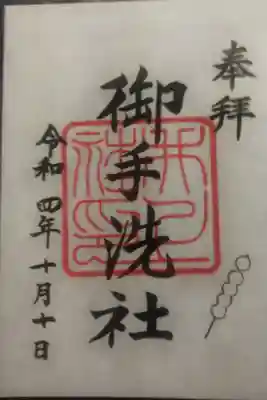 奉拝
御手洗社
令和四年十月十日